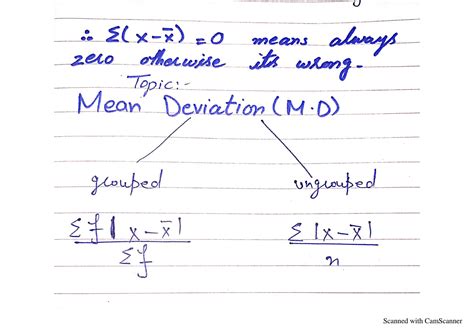 ∴ Σ(x-x̄) = 0 means always
zero otherwise its wrong.
Topic:-
Mean Deviation (M.D)
grouped ungrouped
Σf|x-x̄| / Σf Σ|x-x̄| / n
Scanned with CamScanner